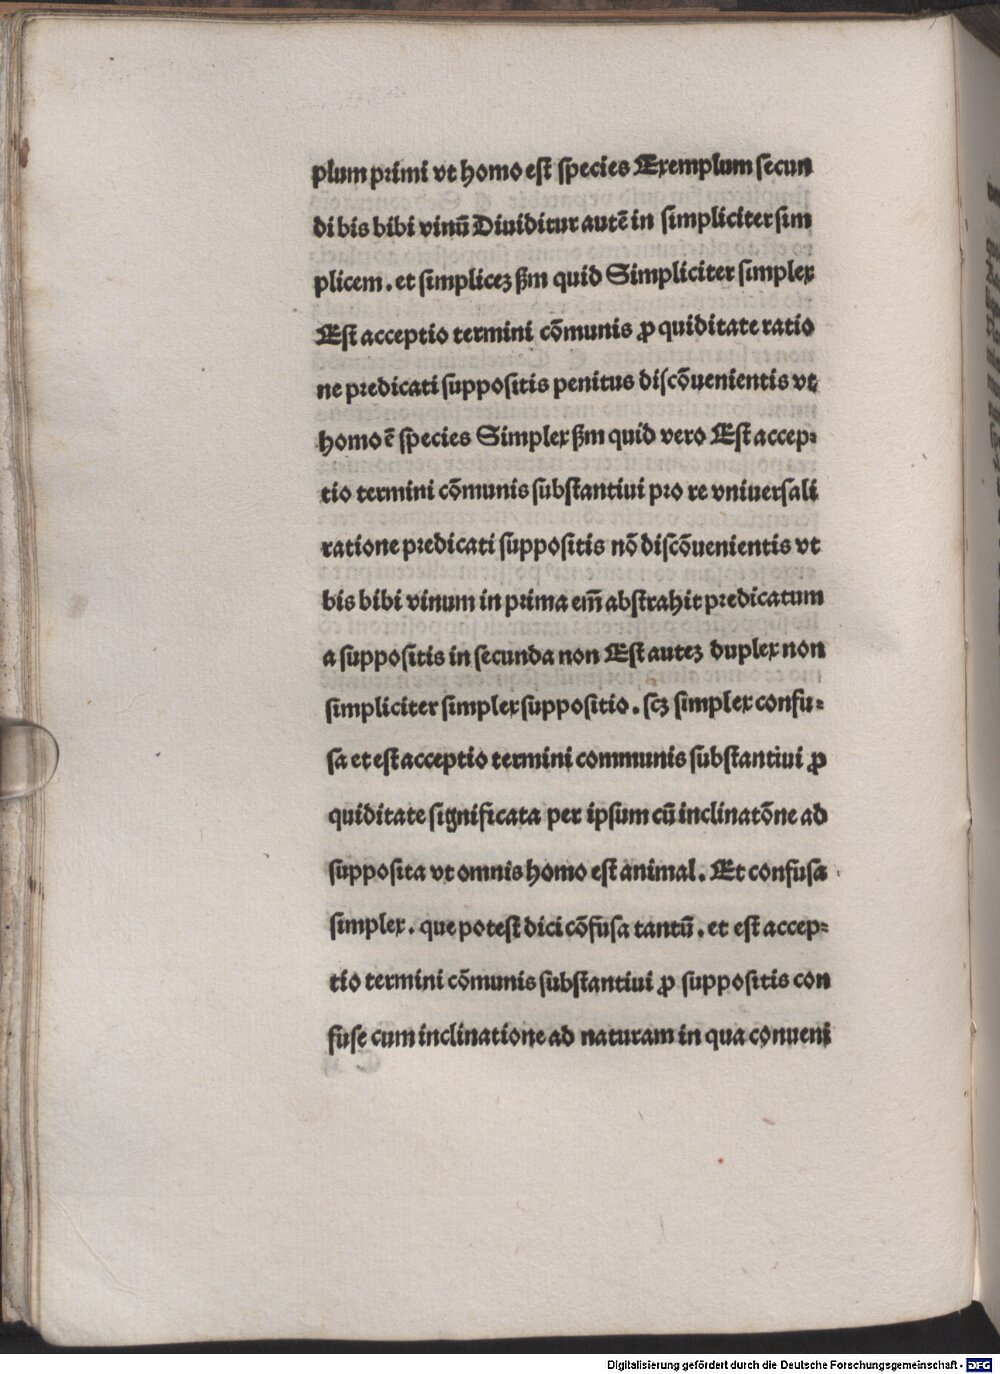 plum primi vt homo est species Exemplum secun
di bis bibi vinū Diuiditur autē in simpliciter sim
plicem. et simplicez ẜm quid Simpliciter simplex
Est acceptio termini cōmunis ꝓ quiditate ratio
ne predicati suppositis penitus discōuenientis vt
homo ē species Simplex ẜm quid vero Est accep⸗
tio termini cōmunis substantiui pro re vniuersali
ratione predicati suppositis nō discōuenientis vt
bis bibi vinum in prima em̄ abstrahit predicatum
a suppositis in secunda non Est autez duplex non
simpliciter simplex suppositio. scz simplex confu⸗
sa et est acceptio termini communis substantiui ꝓ
quiditate significata per ipsum cū inclinatōne ad
supposita vt omnis homo est animal. Et confusa
simplex. que potest dici cōfusa tantū. et est accep⸗
tio termini cōmunis substantiui ꝓ suppositis con
fuse cum inclinatione ad naturam in qua conueni
Digitalisierung gefördert durch die Deutsche Forschungsgemeinschaft - DFG